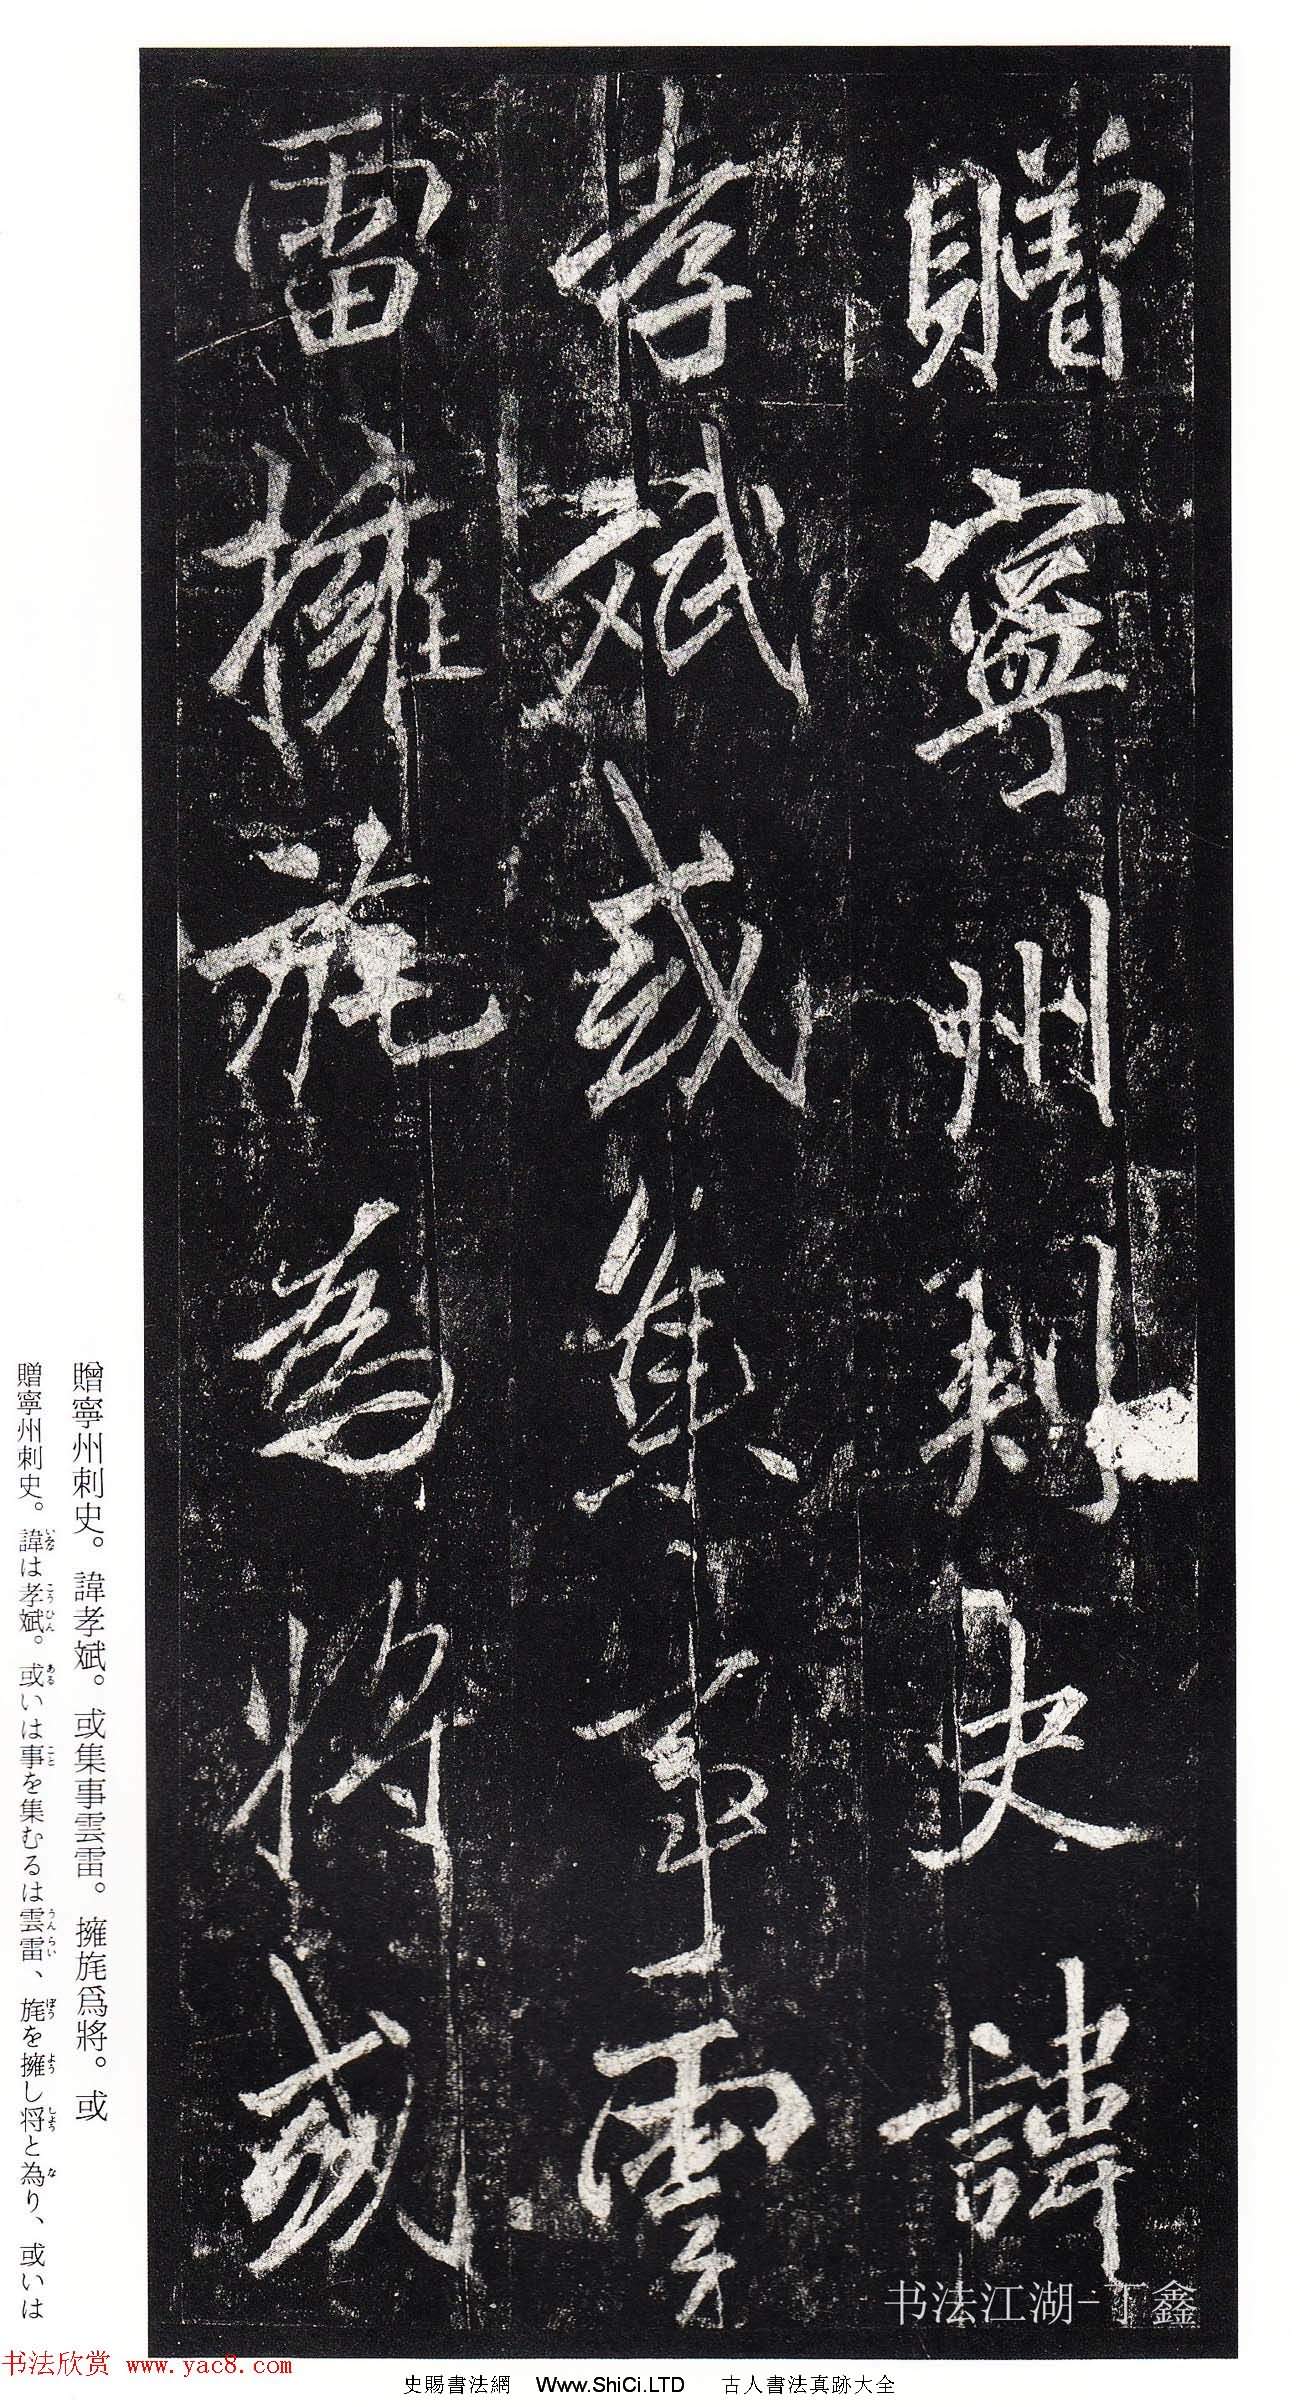 贈寧州刺史諱
孝斌或集事雲
雷擁旄為將或
贈寧州刺史。諱孝斌。或集事雲雷。擁旄爲將。或
贈寧州刺史。諱は孝斌。或いは事を集むるは雲雷、旄を擁し将と為り、或いは
书法江湖-丁鑫
书法欣赏 www.yac8.com
史賜書法網 Www.ShiCi.LTD 古人書法真跡大全